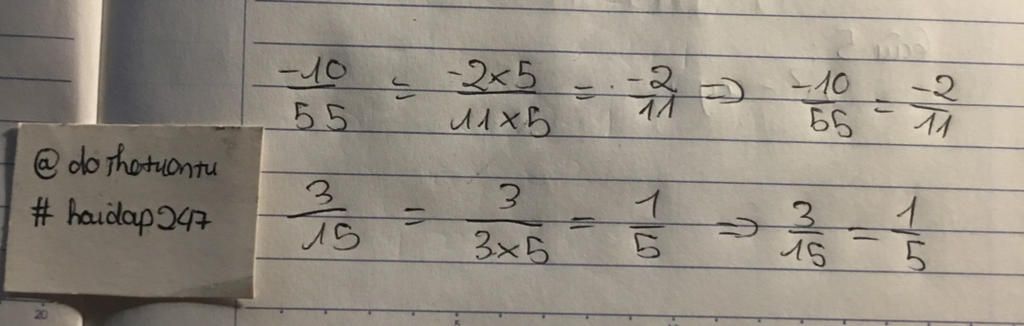 -10/55 = -2×5/11×5 = -2/11 ⇒ -10/55 = -2/11
@ dothetuantu
# hoidap247
3/15 = 3/3×5 = 1/5 ⇒ 3/15 = 1/5
20